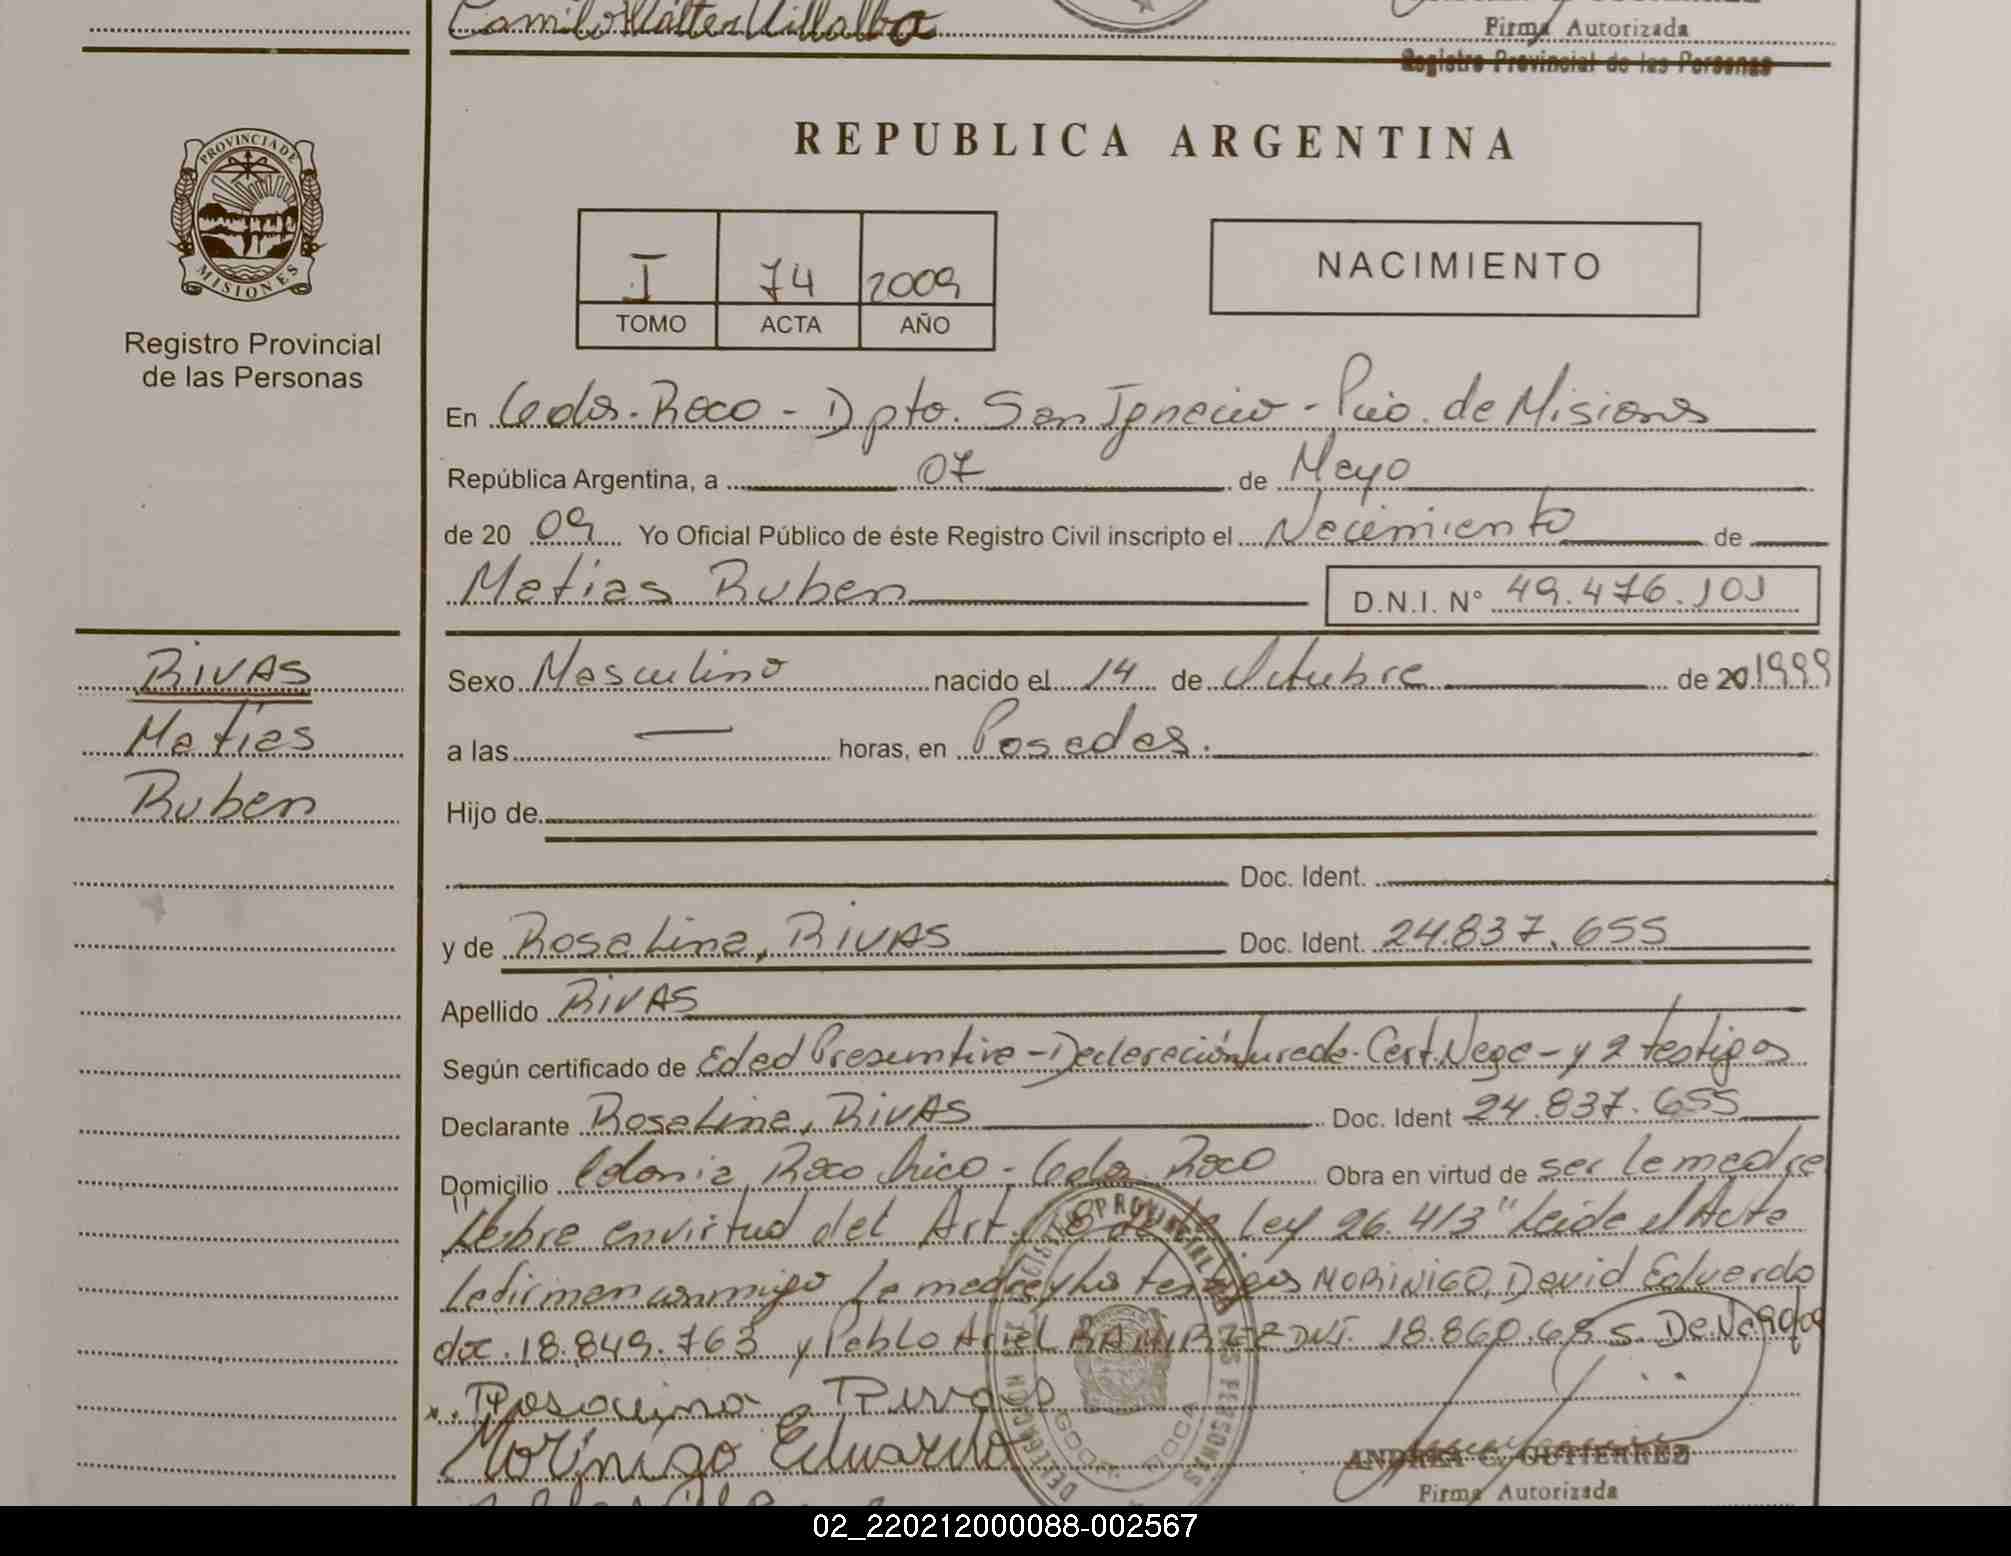 Camilo Walter Villalba
Firma Autorizada
Registro Provincial de las Personas
PROVINCIA DE
MISIONES
Registro Provincial
de las Personas
REPUBLICA ARGENTINA
I 74 2009
TOMO ACTA AÑO
NACIMIENTO
En Gdor. Roca - Dpto. San Ignacio - Pcio. de Misiones
República Argentina, a 07 de Mayo
de 20 09 Yo Oficial Público de éste Registro Civil inscripto el Nacimiento de
Matias Ruben D.N.I. N° 49.476.101
RIVAS
Matias
Ruben
Sexo Masculino nacido el 14 de Octubre de 20 1999
a las — horas, en Posadas.
Hijo de
Doc. Ident.
y de Rosalina, RIVAS Doc. Ident. 24.837.655
Apellido RIVAS
Según certificado de Edad Presuntiva - Declaración Jurada - Cert. Nega - y 2 testigos
Declarante Rosalina, RIVAS Doc. Ident 24.837.655
Domicilio Colonia Roca Chica - Gdor. Roca Obra en virtud de ser la madre
labre en virtud del Art. de la Ley 26.413" Leida el Acta
la firman conmigo la madre y los testigos MORINIGO, David Eduardo
doc. 18.849.763 y Pablo Ariel RAMIREZ DNI. 18.860.685
Rivas
Morínigo Eduardo
REGISTRO PROVINCIAL DE LAS PERSONAS
DELEGACION
GDOR. ROCA
ANDREA C. GUTIERREZ
Firma Autorizada
02_220212000088-002567